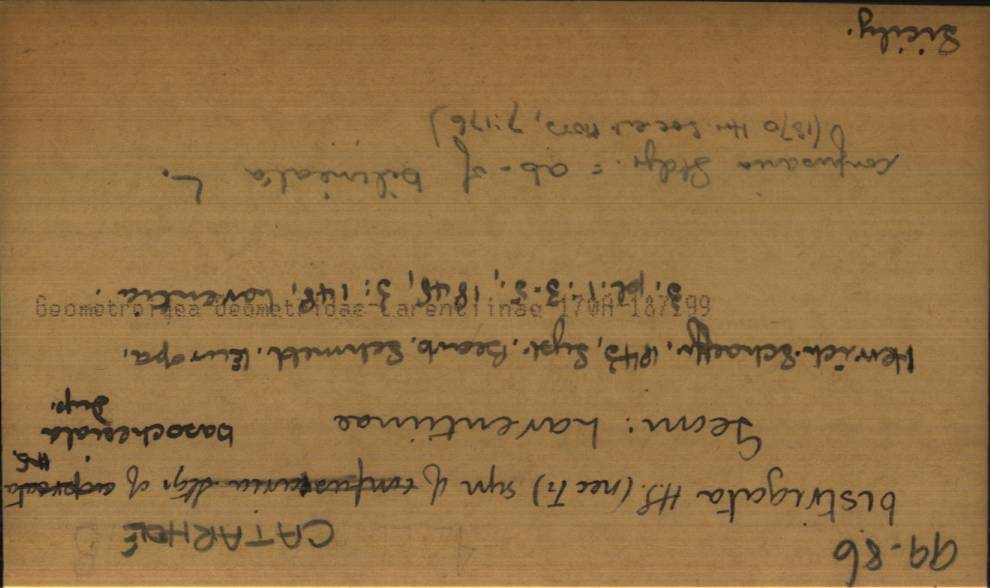 99-86
CATARHOE
bistrigata HS. (nec Tr) syn of confusaria Stgr of
HS
Geom: Larentiinae basochesiata
Dup.
Herrich-Schaeffer, 1843, Syst. Bearb. Schmett. Europa,
3: pl. 1: 3-5, 1848, 3: 148, Larentia.
Geometroidea Geometridae Larentiinae 170A 187299
confusaria Stdgr. = ab. of bilineata L.
(1870 Hor Soc ent Ross, 7:176)
Sicily.